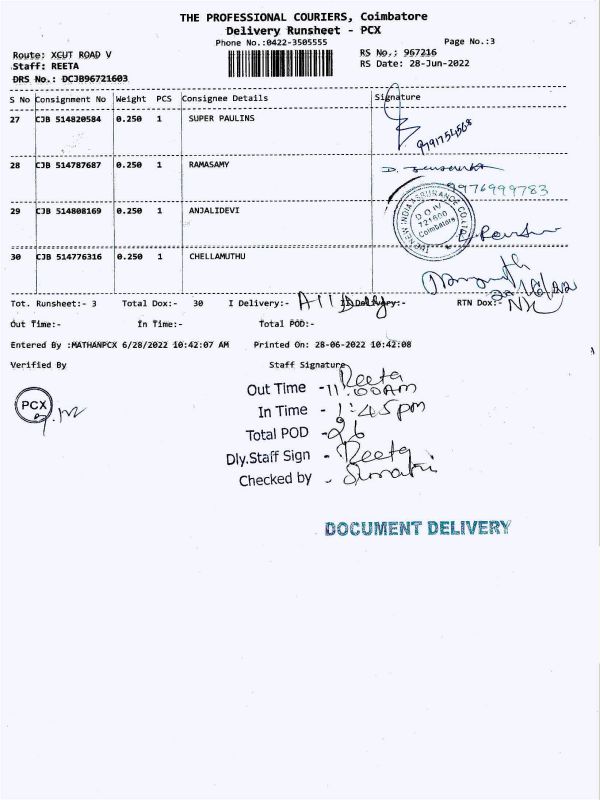 THE PROFESSIONAL COURIERS, Coimbatore
Delivery Runsheet - PCX
Phone No.:0422-3505555
Page No.:3
Route: XCUT ROAD V
RS No.: 967216
Staff: REETA
RS Date: 28-Jun-2022
DRS No.: DCJB96721603
S No Consignment No Weight PCS Consignee Details Signature
27 CJB 514820584 0.250 1 SUPER PAULINS
9791754568
28 CJB 514787687 0.250 1 RAMASAMY
9976999783
29 CJB 514808169 0.250 1 ANJALIDEVI
THE NEW INDIA ASSURANCE CO.LTD
D O IV
721600
Coimbatore
30 CJB 514776316 0.250 1 CHELLAMUTHU
Tot. Runsheet:- 3 Total Dox:- 30 I Delivery:- All Dely RTN Dox:- Nil
Out Time:- In Time:- Total POD:-
Entered By :MATHANPCX 6/28/2022 10:42:07 AM Printed On: 28-06-2022 10:42:08
Verified By Staff Signature
Reeta
PCX
Out Time - 11:00AM
In Time - 1:45pm
Total POD - 26
Dly.Staff Sign - Reeta
Checked by -
DOCUMENT DELIVERY